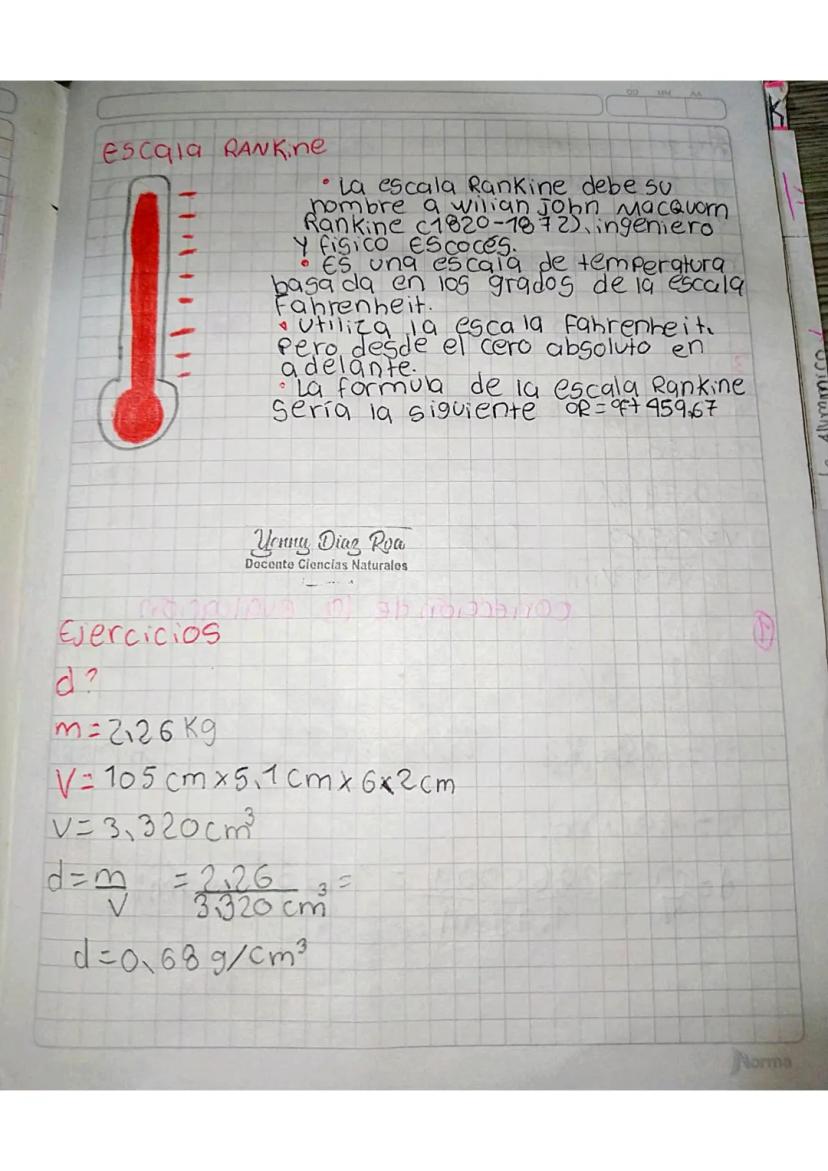 DD MM AA
K
Escala RANKine
• La escala Rankine debe su
nombre a wilian john Macquorn
Rankine (1820-1872), ingeniero
y fisico Escocés.
• Es una escala de temperatura
basada en los grados de la escala
Fahrenheit.
• Utiliza la escala Fahrenheit,
Pero desde el cero absoluto en
adelante.
• La formula de la escala Rankine
sería la siguiente ºR=ºF+459,67
Yenny Diaz Roa
Docente Ciencias Naturales
Ejercicios
d?
m=2,26 Kg
V=105 cm x 5,1 cm x 6x2 cm
V=3,320 cm³
d=m/V =2,26/3.320 cm³ =
d=0,68 g/cm³
Norma